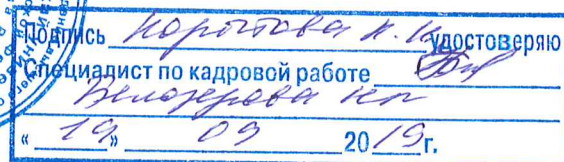 Подпись Коротова Н. К. удостоверяю
Специалист по кадровой работе
Белозерова
« 19 » 09 2019 г.